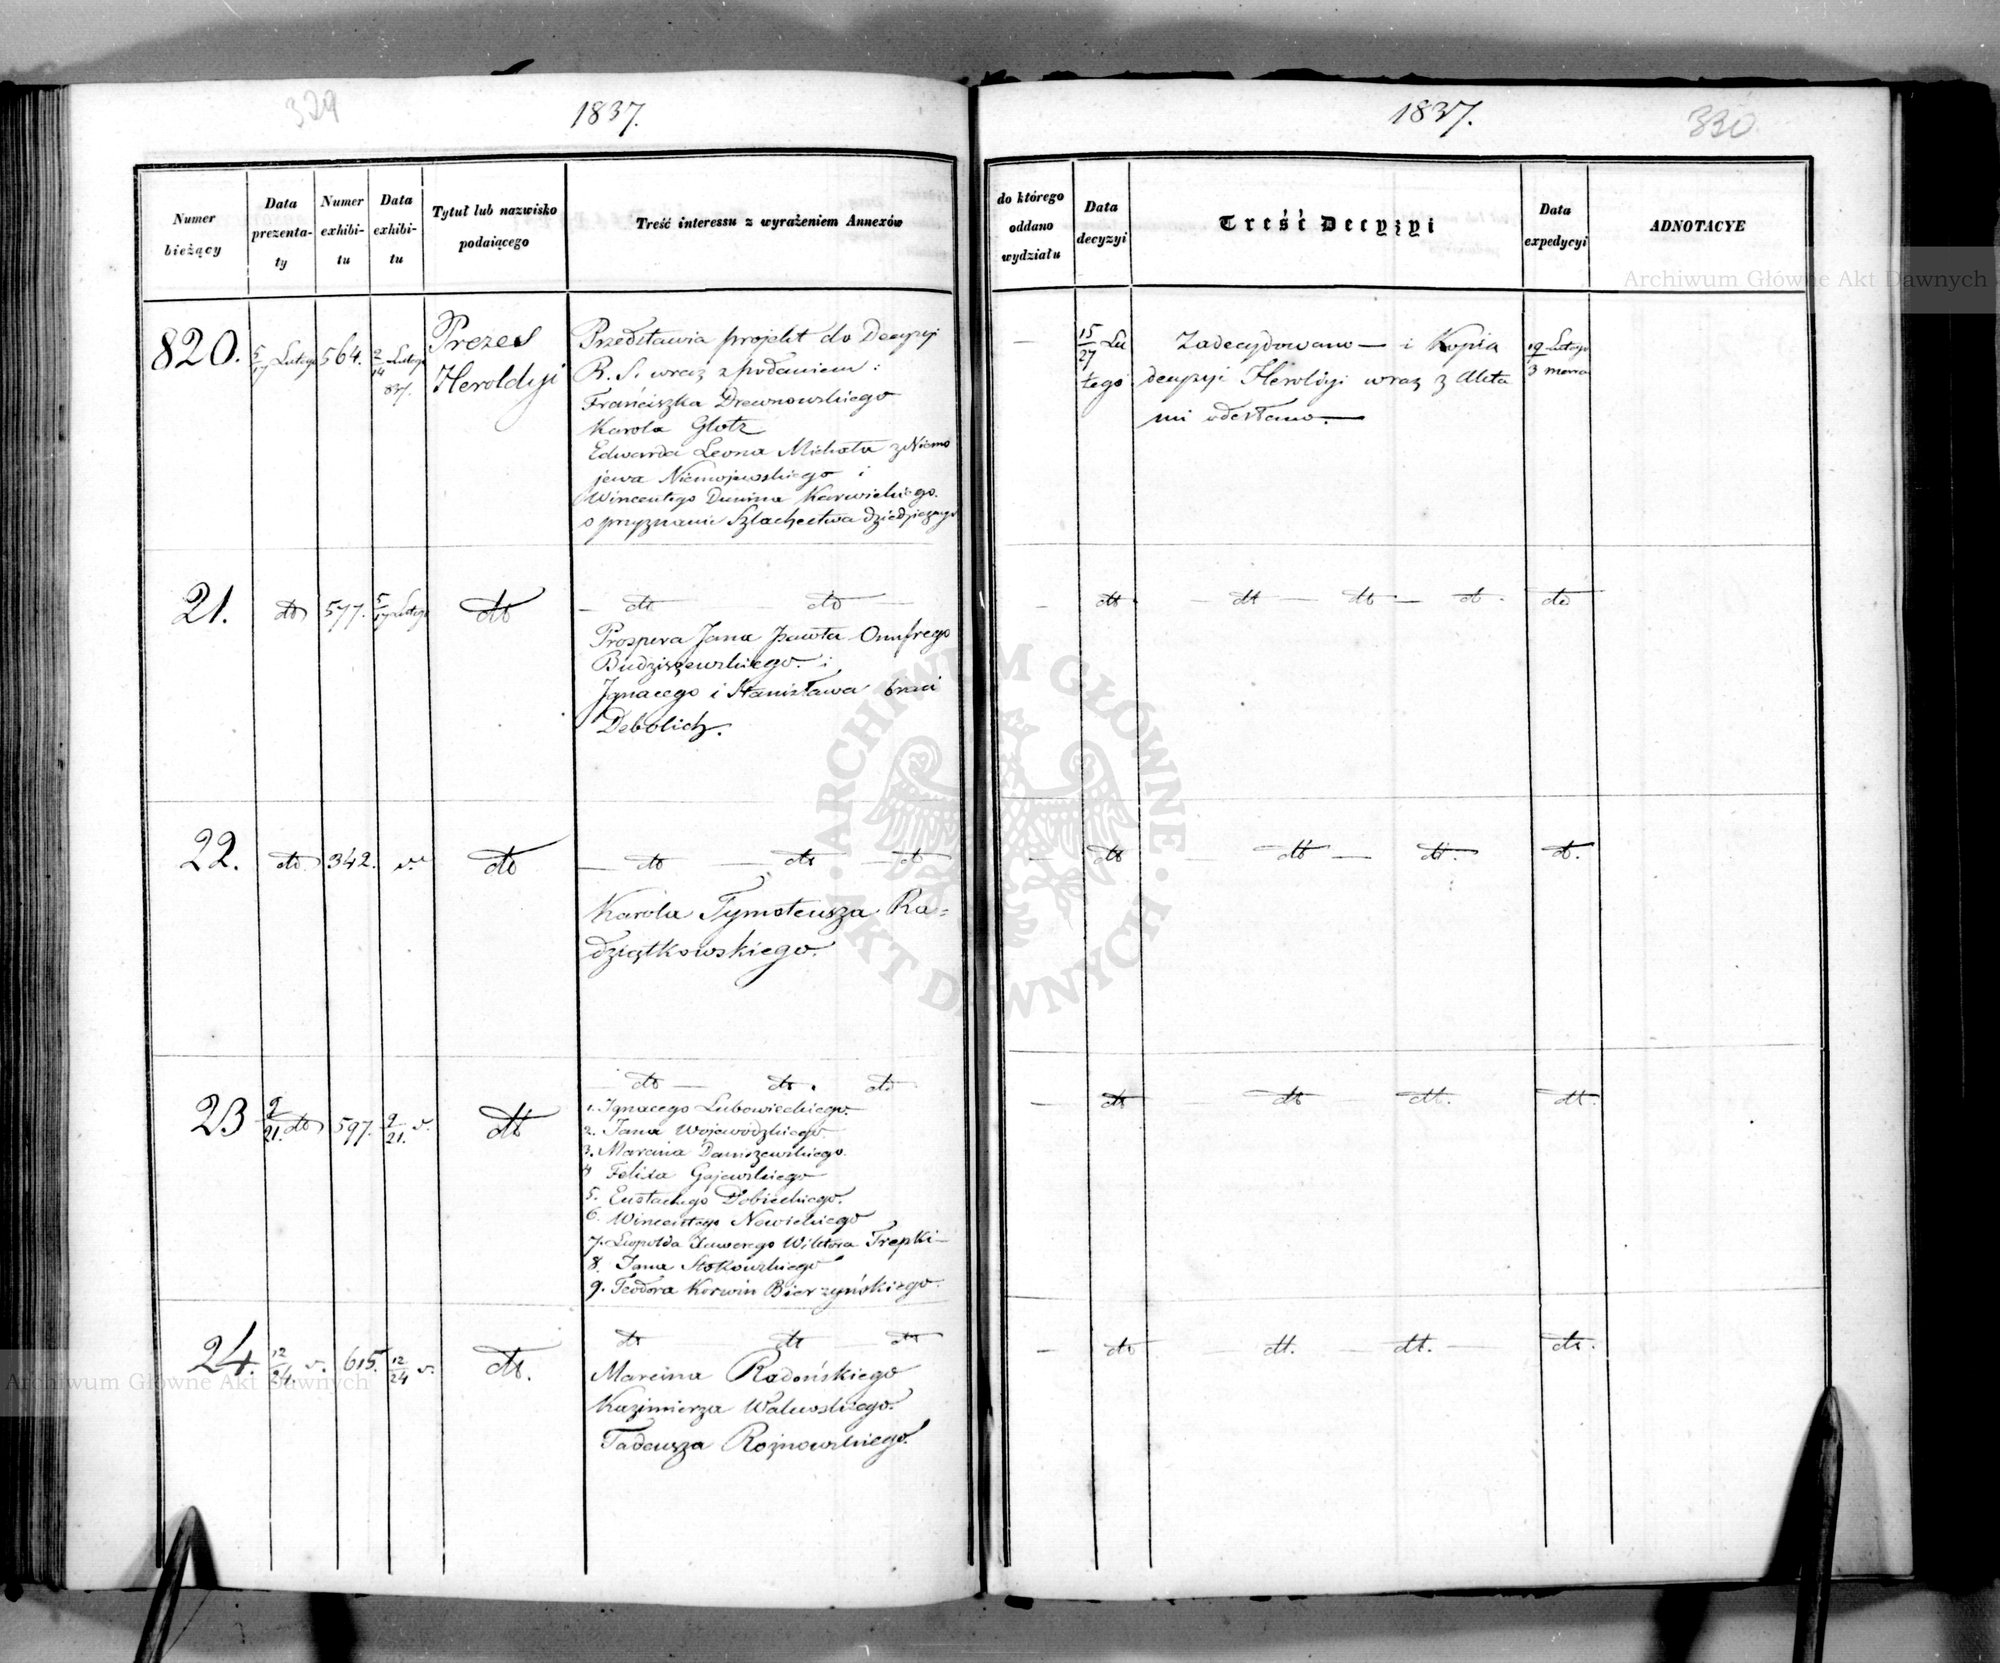 329
1837.
Numer bieżący
Data prezentaty
Numer exhibitu
Data exhibitu
Tytuł lub nazwisko podaiącego
Treść interessu z wyrażeniem Annexów
820.
5/17 Lutego
564.
2/14 Lutego 837.
Prezes
Heroldyi
Przedstawia projekt do Decyzyi
R. S. wraz z podaniem:
Franciszka Drewnowskiego
Karola Glotz
Edwarda Leona Michała z Niemo
jewa Niemojewskiego i
Wincentego Dunina Karwickiego.
o przyznanie Szlachectwa dziedzicznego
21.
dto
577.
5/17 Lutego
dto
— dto — dto —
Prospera Jana Pawła Onufrego
Budziszewskiego i
Ignacego i Stanisława braci
Debolich.
22.
dto
342.
v.
dto
— dto — dto — dto
Karola Tymoteusza Ra=
dziątkowskiego.
23
9/21. dto
597.
9/21. v.
dto
— dto — dto. dto
1. Ignacego Lubowieckiego.
2. Jana Wojewódzkiego
3. Marcina Daniszewskiego.
4 Felixa Gajewskiego
5. Eustachego Dobieckiego.
6. Wincentego Nowickiego
7. Leopolda Xawerego Wiktora Trepki—
8. Jana Stokowskiego
9. Teodora Korwin Bierzyńskiego.
24.
12/24. v.
615.
12/24 v.
dto.
dto — dto — dto
Marcina Radońskiego
Kazimierza Walewskiego.
Tadeusza Rożnowskiego.
1837.
330
do którego oddano wydziału
Data decyzyi
Treść Decyzyi
Data expedycyi
ADNOTACYE
—
15/27 Lu
tego
Zadecydowano — i Kopia
decyzyi Heroldyi wraz z Akta
mi odesłano. —
19 Lutego
3 marca
— dto. — dto — dto — dto. dto
— dto — dto — dto. dto.
— dto — dto — dto. dto.
— dto — dto. — dto. — dto.
Archiwum Główne Akt Dawnych
Archiwum Główne Akt Dawnych
ARCHIWUM GŁÓWNE · AKT DAWNYCH ·